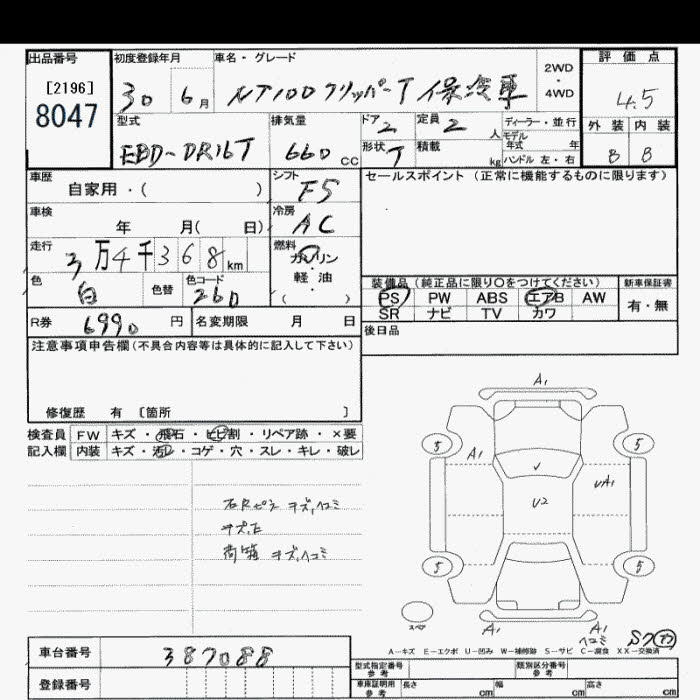 出品番号 初度登録年月 車名・グレード 評価点
[2196] 30 6月 NT100クリッパーT 保冷車 2WD・4WD 4.5
8047
型式 排気量 ドア 2 定員 2人 ディーラー・並行 外装 内装
EBD-DR16T 660cc 形状 T 積載 kg モデル年式 年 ハンドル 左・右 B B
車歴 自家用・( ) シフト F5 セールスポイント(正常に機能するものに限ります)
車検 年 月( 日) 冷房 AC
走行 3万4千368km 燃料 ガソリン・軽油 ( )
色 白 色替 色コード 26D 装備品(純正品に限り○をつけてください) 新車保証書
PS PW ABS エアB AW 有・無
SR ナビ TV カワ
R券 6990円 名変期限 月 日 後日品
注意事項申告欄(不具合内容等は具体的に記入して下さい)
修復歴 有 〔箇所 〕
検査員 FW キズ・飛石・ヒビ割・リペア跡・×要
記入欄 内装 キズ・汚レ・コゲ・穴・スレ・キレ・破レ
キズ,ヘコミ
荷箱 キズ,ヘコミ
A1
5 5
A1 UA1
U2
5 5
スペア
A1 A1
ヘコミ
A-キズ E-エクボ U-凹み W-補修跡 S-サビ C-腐食 XX-交換済
車台番号 387088
登録番号
型式指定番号 参考 類別区分番号 参考
車庫証明用 参考 長さ cm 幅 cm 高さ cm